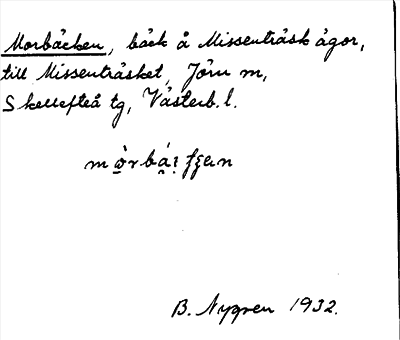 Morbäcken, bäck å Missenträsk ägor,
till Missenträsket, Jörn m,
Skellefteå tg, Västerb. l.
B. Nygren 1932.